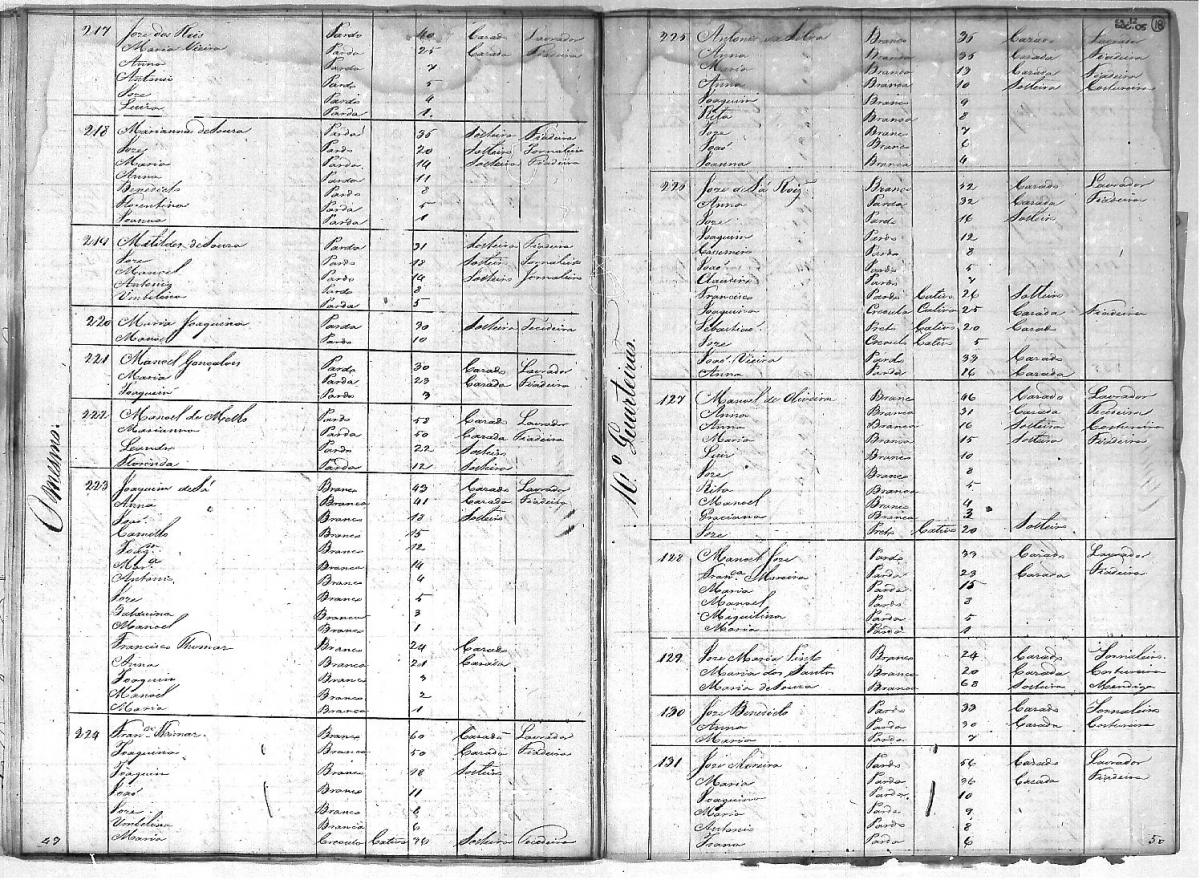 O mesmo.
217 Joze dos Reis Pardo 40 Cazado Lavrador
Maria Vieira Parda 25 Cazada Fiadeira
Anna Parda 7
Antonio Pardo 5
Joze Pardo 4
Luiza Parda 1
218 Marianna de Souza Parda 35 Solteira Fiadeira
Joze Pardo 20 Solteiro Jornaleiro
Maria Parda 14 Solteira Fiadeira
Anna Parda 11
Benedicto Pardo 8
Florentina Parda 5
Joanna Parda 1
219 Matildes de Souza Parda 31 Solteira Fiadeira
Joze Pardo 18 Solteiro Jornaleiro
Manoel Pardo 14 Solteiro Jornaleiro
Antonio Pardo 8
Umbelina Parda 5
220 Maria Joaquina Parda 30 Solteira Tecedeira
Manoel Pardo 10
221 Manoel Gonçalves Pardo 30 Cazado Lavrador
Maria Parda 23 Cazada Fiadeira
Joaquim Pardo 3
222 Manoel de Mello Pardo 52 Cazado Lavrador
Marianna Parda 50 Cazada Fiadeira
Leandro Pardo 22 Solteiro
Florinda Parda 12 Solteira
223 Joaquim de Sá Branco 43 Cazado Lavrador
Anna Branca 41 Cazada Fiadeira
José Branco 18 Solteiro
Camillo Branco 15
Joaqm. Branco 12
Mara. Branca 14
Antonio Branco 4
Joze Branco 5
Balduina Branca 3
Manoel Branco 1
Francisco Thomas Branco 24 Cazado
Anna Branca 21 Cazada
Joaquim Branco 3
Manoel Branco 2
Maria Branca 1
224 Branco 60 Cazado Lavrador
Joaquina Branca 50 Cazada Fiadeira
Joaquim Branco 18 Solteiro
João Branco 11
Joze Branco 8
Umbelina Branca 6
Maria Creoula Cativa 36 Solteira Tecedeira
49
18
10º Quarteirão.
225 Antonio da Silva Branco 35 Cazado Lavrador
Anna Branca 35 Cazada Fiadeira
Maria Branca 13 Cazada Fiadeira
Anna Branca 10 Solteira Costureira
Joaquim Branco 9
Rita Branca 8
Joze Branco 7
João Branco 6
Joanna Branca 4
225 Joze de Sá Roiz Branco 52 Cazado Lavrador
Anna Parda 32 Cazada Fiadeira
Joze Pardo 16 Solteiro
Joaquim Pardo 12
Cazemiro Pardo 8
João Pardo 5
Claudino Pardo 7
Francisco Pardo Cativo 26 Solteiro
Joaquina Creoula Cativa 25 Cazada Fiadeira
Sebastião Preto Cativo 20 Cazado
Joze Creoulo Cativo 5
João Vieira Pardo 33 Cazado
Anna Parda 16 Cazada
127 Manoel de Oliveira Branco 46 Cazado Lavrador
Anna Branca 31 Cazada Tecedeira
Anna Branca 16 Solteira Costureira
Maria Branca 15 Solteira Fiadeira
Luis Branco 10
Joze Branco 8
Rita Branca 5
Manoel Branco 4
Graciana Branca 3
Joze Preto Cativo 20 Solteiro
128 Manoel Joze Pardo 33 Cazado Lavrador
Franca. Moreira Parda 23 Cazada Fiadeira
Maria Parda 15
Manoel Pardo 8
Miquilina Parda 5
Maria Parda 1
129 Joze Maria Pinto Branco 24 Cazado Jornaleiro
Maria dos Santos Branca 20 Cazada Costureira
Maria de Souza Branca 68 Solteira Mendiga
130 Joze Benedicto Pardo 33 Cazado Jornaleiro
Anna Parda 30 Cazada Costureira
Maria Parda 7
131 Joze Moreira Pardo 56 Cazado Lavrador
Maria Parda 36 Cazada Fiadeira
Joaquina Parda 10
Maria Parda 9
Antonio Pardo 8
Joana Parda 6
50